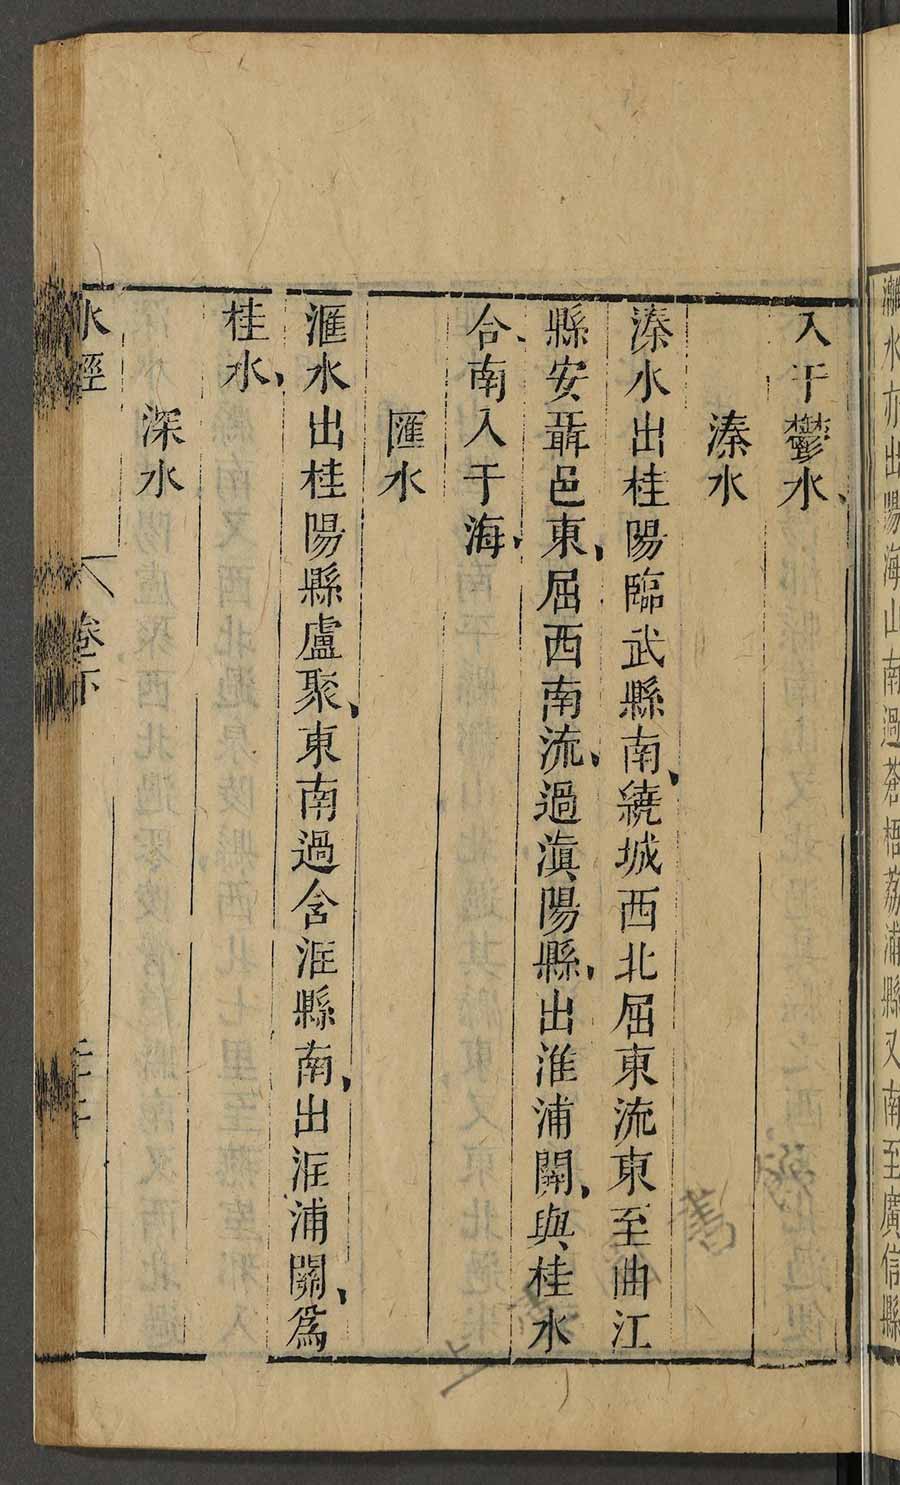 灕水亦出陽海山南過蒼梧荔浦縣又南至廣信縣
入于鬱水、
溱水
溱水出桂陽臨武縣南、繞城西北屈東流東至曲江
縣安聶邑東、屈西南流、過湞陽縣、出淮浦關、與桂水
合、南入于海、
匯水
滙水出桂陽縣盧聚、東南過含洭縣南、出洭浦關、爲
桂水、
深水
水經
卷下